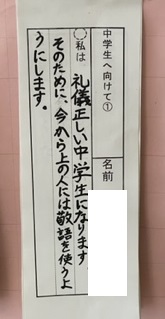 中学生へ向けて①
名前
○私は 礼儀正しい中学生になります。
そのために、今から上の人には敬語を使うよ
うにします。